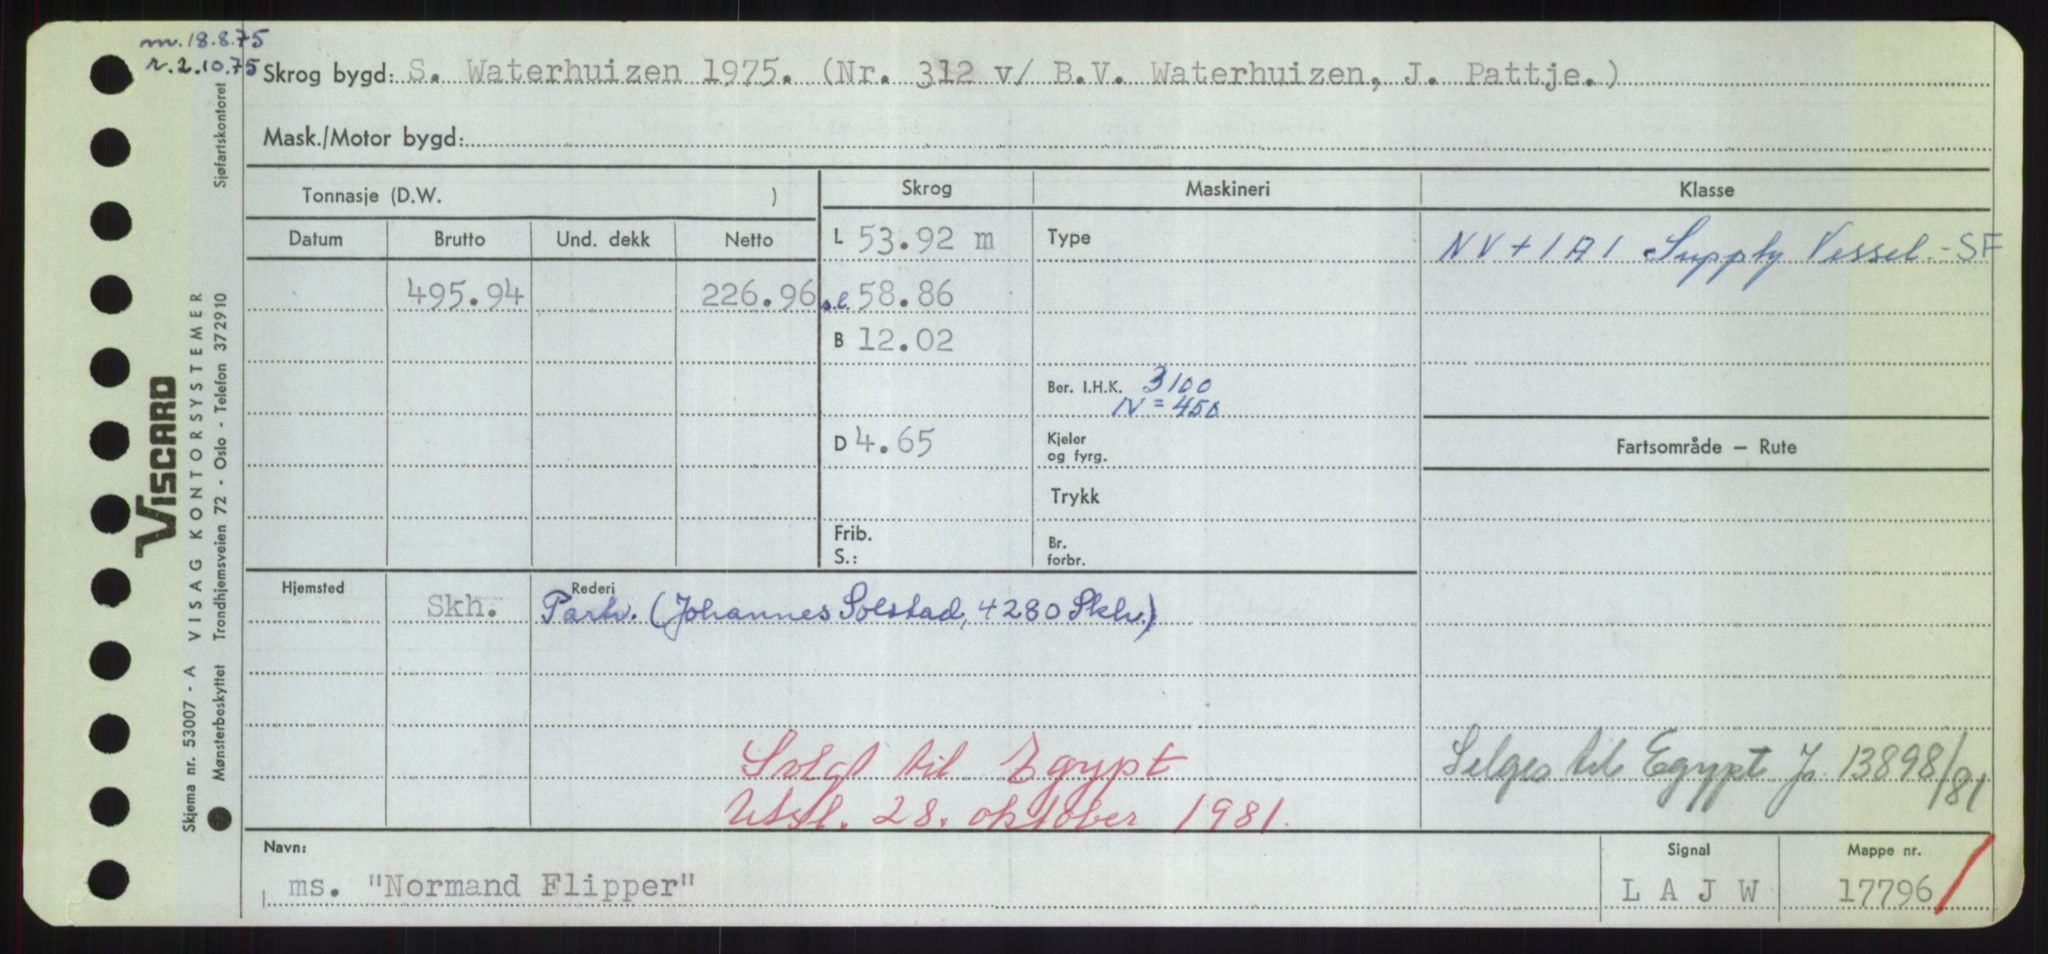 m. 18.8.75
r. 2.10.75
Skrog bygd: S. Waterhuizen 1975. (Nr. 312 v/ B.V. Waterhuizen, J. Pattje.)
Mask./Motor bygd:
Tonnasje (D.W. )
Skrog
Maskineri
Klasse
Datum Brutto Und. dekk Netto
L 53.92 m
Type
NV + 1A1 Supply Vessel.-SF
495.94 226.96
s.l. 58.86
B 12.02
Ber. I.H.K. 3100
N = 450
D 4.65
Kjeler
og fyrg.
Fartsområde — Rute
Trykk
Frib.
S.:
Br.
forbr.
Hjemsted
Skh.
Rederi
Partr. (Johannes Solstad, 4280 Skh.)
Solgt til Egypt
Utsl. 28. oktober 1981.
Selges til Egypt J. 13898/81
Navn:
ms. "Normand Flipper"
Signal
L A J W
Mappe nr.
17796
VISCARD
Skjema nr. 53007 - A VISAG KONTORSYSTEMER
Mønsterbeskyttet Trondhjemsveien 72 - Oslo - Telefon 372910
Sjøfartskontoret